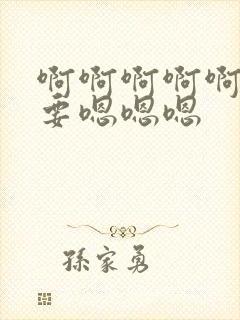 啊啊啊啊啊
要嗯嗯嗯
孫家勇